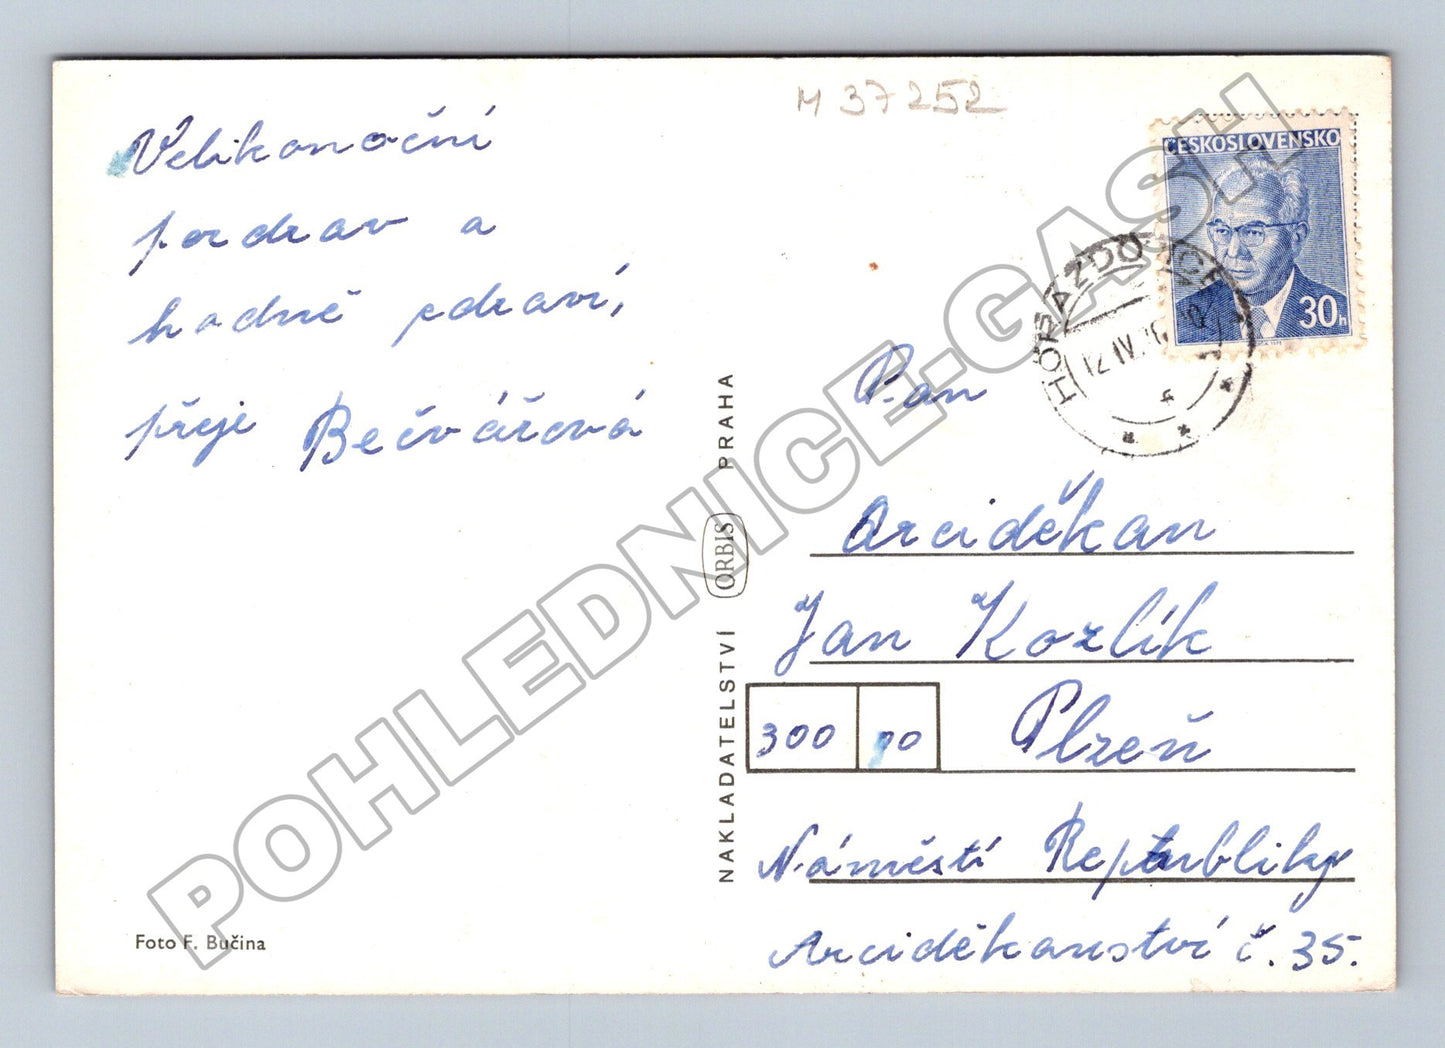 M 37252
Velikonoční
pozdrav a
hodně zdraví,
přeje Bečvářová
ČESKOSLOVENSKO
30h
HORAŽĎOVICE
12.IV.76
Pan
Arciděkan
Jan Kozlík
300 00 Plzeň
Náměstí Republiky
Arciděkanství č. 35.
NAKLADATELSTVÍ ORBIS PRAHA
Foto F. Bučina
POHLEDNICE-GASH